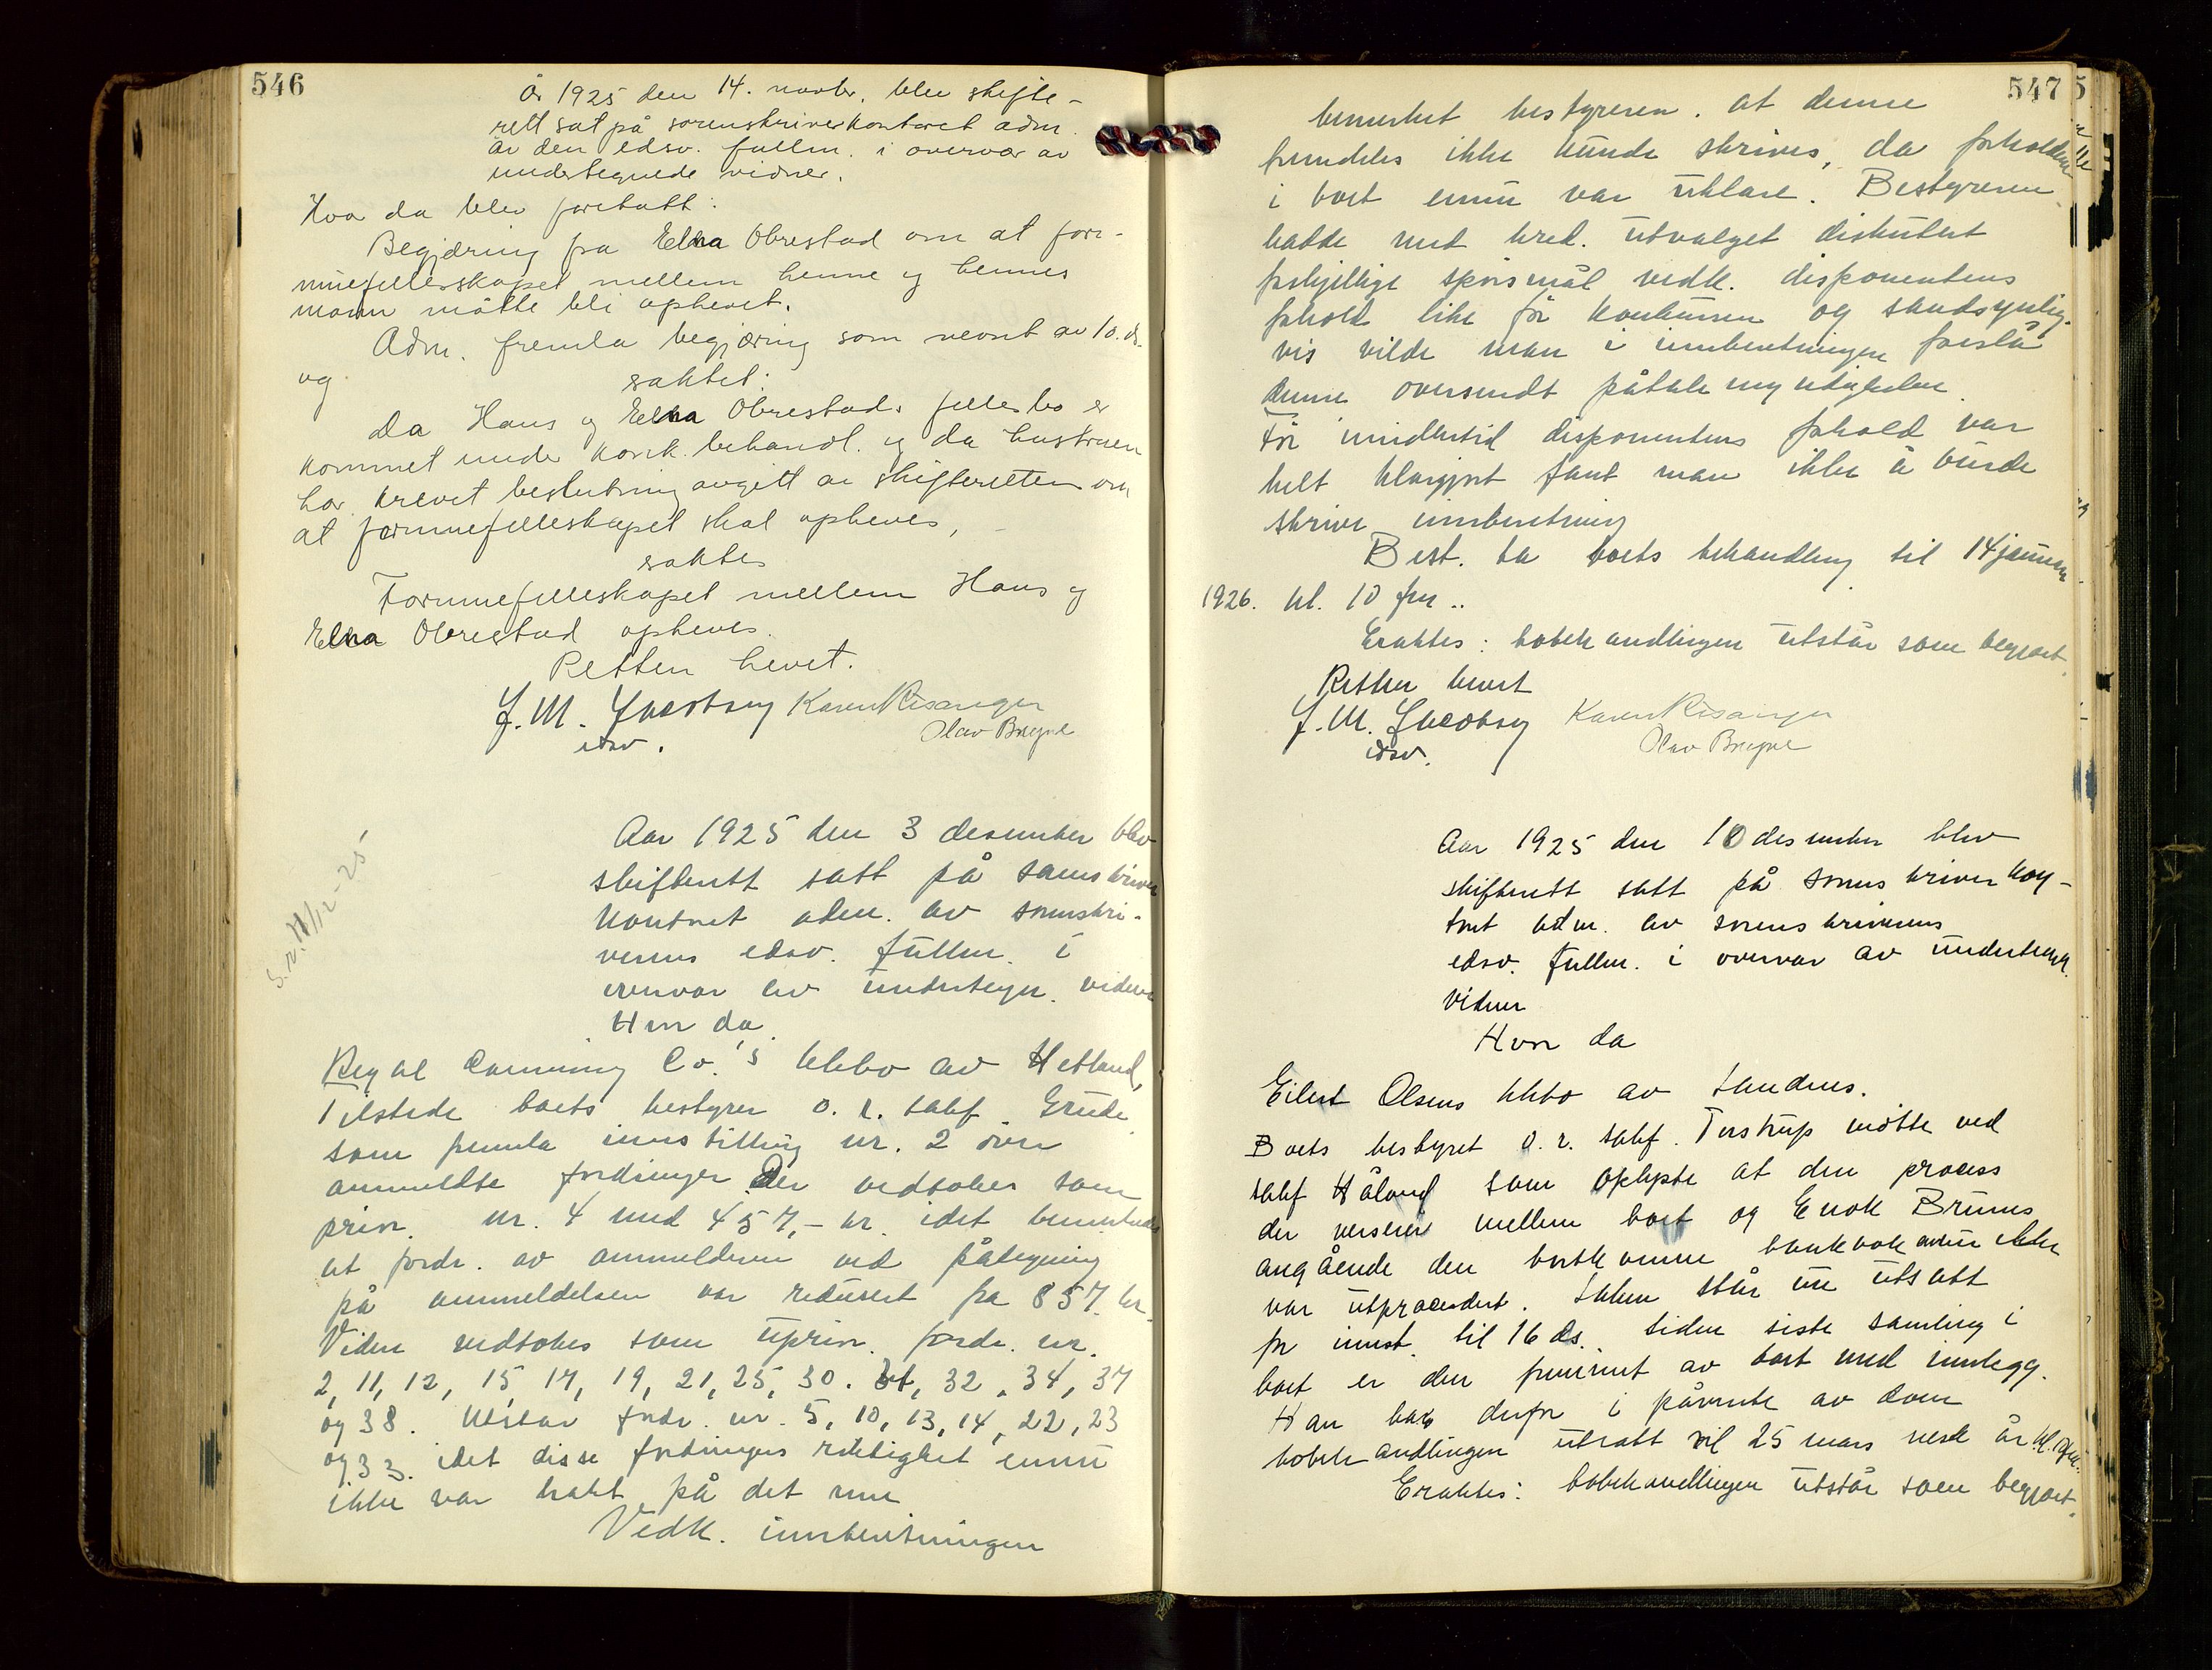 546
År 1925 den 14. novbr. blev skifte-
rett sat på sorenskriverkontoret adm.
av den edsv. fullm. i overvær av
undertegnede vidner.
Hva da blev foretatt:
Begjæring fra Elna Obrestad om at for-
muefellesskapet mellem henne og hennes
mann måtte bli ophevet.
Adm. fremla begjæring som nevnt av 10. ds.
og
saktet:
Da Hans og Elna Obrestads fellesbo er
kommet under konk. behandl. og da hustruen
har krevet beslutning avgitt av skifteretten om
at formuefelleskapet skal opheves,
saktes
Formuefelleskapet mellem Hans og
Elna Obrestad opheves.
Retten hevet.
J. M. Jacobsen Karen Risanger
edsv. Olav Bryne
S.N. 11/12-25
Aar 1925 den 3 desember blev
skifterett satt på sorenskriver
kontoret adm. av sorenskri-
verens edsv. fullm. i
overvær av undertegn. vidner
Hvor da
Royal Canning Co.'s kkbo av Hetland,
Tilstede boets bestyrer o.r. sakf. Grude
som fremla innstilling nr. 2 over
anmeldte fordringer. Der vedtokes som
priv. nr. 4 med 457,- kr. idet bemerkedes
at fordr. av anmelderen ved påtegning
på anmeldelsen var redusert fra 857 kr.
Videre vedtokes som upriv. fordr. nr.
2, 11, 12, 15, 17, 19, 21, 25, 30. 31, 32, 34, 37
og 38. Utstår fordr. nr. 5, 10, 13, 14, 22, 23
og 33. idet disse fordringers riktighet ennu
ikke var bragt på det rene
Vedk. innberetningen
547
bemerket bestyreren at denne
fremdeles ikke kunde skrives, da forholdene
i boet ennu var uklare. Bestyreren
hadde med kred. utvalget diskutert
forskjellige spørsmål vedk. disponentens
forhold like før konkursen og sandsynlig-
vis vilde man i innberetningen foreslå
denne oversendt påtalemyndigheten.
Før imidlertid disponentens forhold var
helt klargjort fant man ikke å burde
skrive innberetning
Best. ba boets behandling til 14 januar
1926. kl. 10 fm..
Eraktes: bobehandlingen utstår som begjært
Retten hevet
J. M. Jacobsen Karen Risanger
edsv. Olav Bryne
Aar 1925 den 10 desember blev
skifterett satt på sorenskriverkon-
toret adm. av sorenskriverens
edsv. fullm. i overvær av undertegn.
vidner
Hvor da
Eilert Olsens kkbo av Sandnes.
Boets bestyrer o.r. sakf. Torstrup møtte ved
sakf Håland som oplyste at den process
der verserer mellem boet og Enok Brunes
angående den bortkomne bankbok ennu ikke
var utprocedert. Saken står nu utsatt
for innst. til 16 ds. Siden siste samling i
boet er den fremmet av boet med innlegg.
Han bad derfor i påvente av dom
bobehandlingen utsatt til 25 mars neste år kl. 10 fm.
Eraktes: bobehandlingen utstår som begjært.